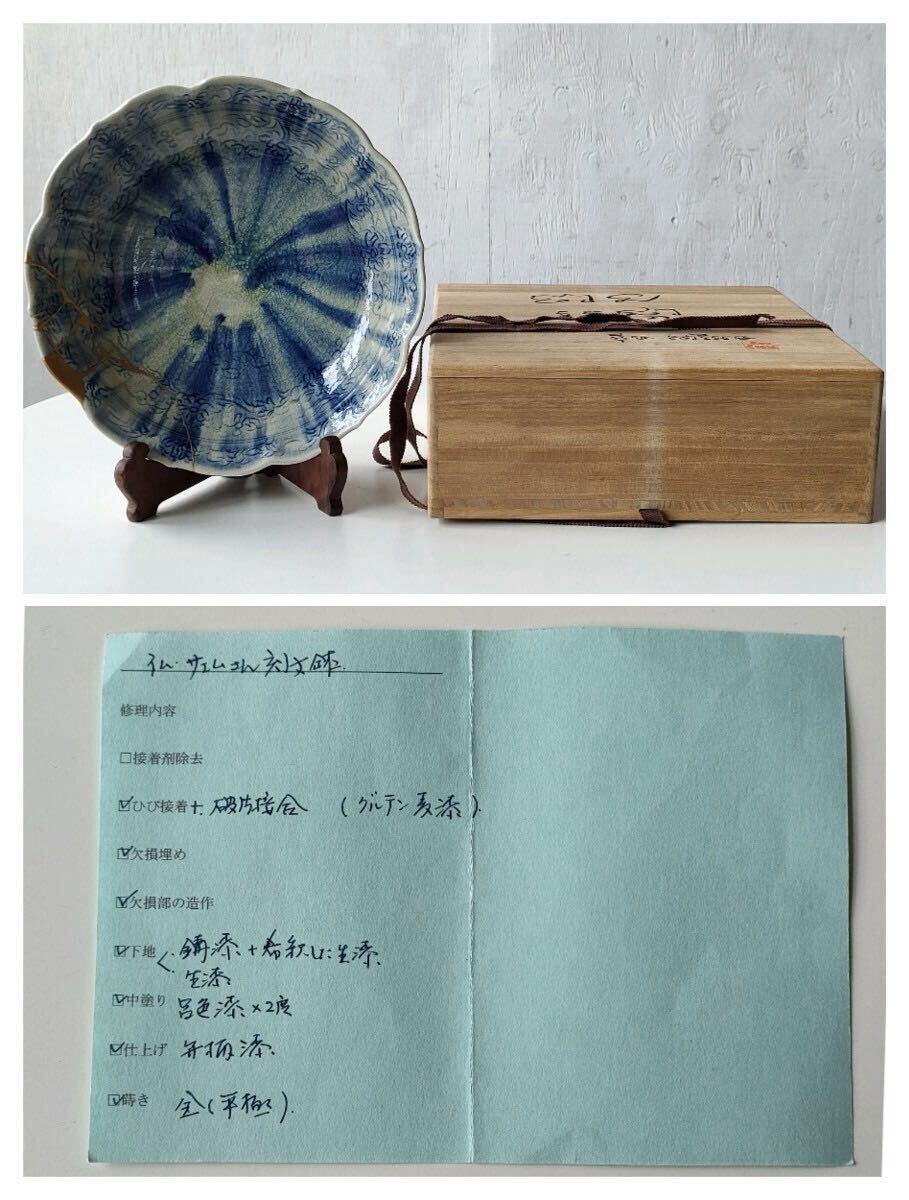 イム・サエムさん 刻文鉢.
修理内容
□接着剤除去
☑ひび接着 +. 破片接合 (グルテン麦漆).
☑欠損埋め
☑欠損部の造作
☑下地 錆漆 + 希釈した生漆
生漆
☑中塗り 呂色漆 × 2度
☑仕上げ 弁柄漆
☑蒔き 金(平極).